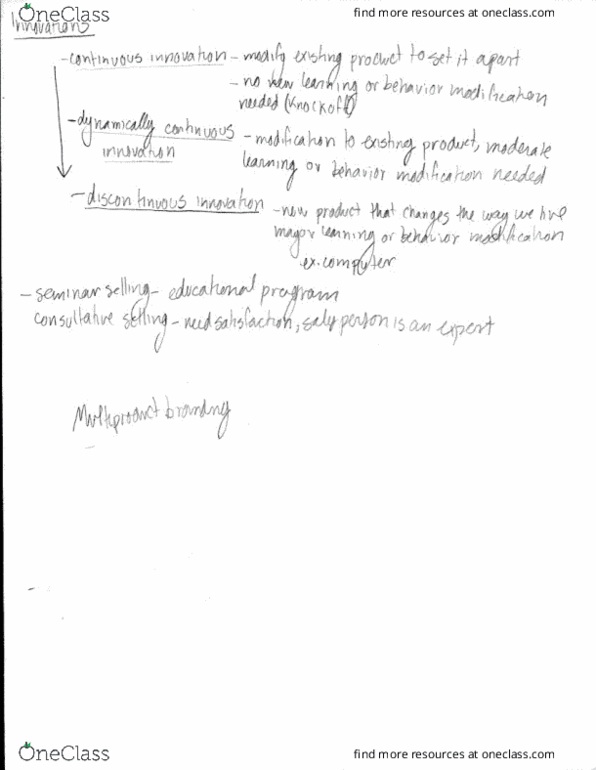 OneClass
find more resources at oneclass.com
Innovations
- continuous innovation - modify existing product to set it apart
- no new learning or behavior modification
needed (Knockoff)
- dynamically continuous - modification to existing product, moderate
innovation
learning or behavior modification needed
- discontinuous innovation - new product that changes the way we live
major learning or behavior modification
ex. computer
- seminar selling - educational program
consultative selling - need satisfaction, sales person is an expert
Multiproduct branding
-
OneClass
find more resources at oneclass.com